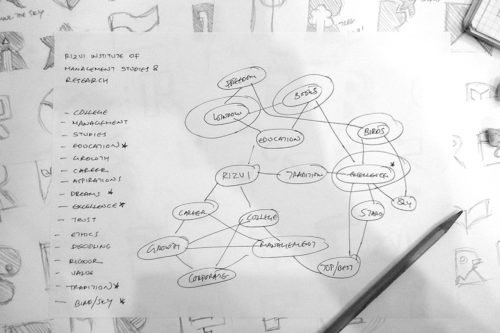 RIZVI INSTITUTE OF
MANAGEMENT STUDIES &
RESEARCH
- COLLEGE
- MANAGEMENT
- STUDIES
- EDUCATION *
- GROWTH
- CAREER
- ASPIRATIONS
- DREAMS *
- EXCELLENCE *
- TRUST
- ETHICS
- DECODING
- RIGOUR
- VALUE
- TRADITION *
- BIRD/SKY *
FREEDOM
BOOKS
WINDOW
BIRDS
EDUCATION
RIZVI
TRADITION
EXCELLENCE *
SKY
STARS
CAREER
COLLEGE
GROWTH
MANAGEMENT
CORPORATE
TOP/BEST